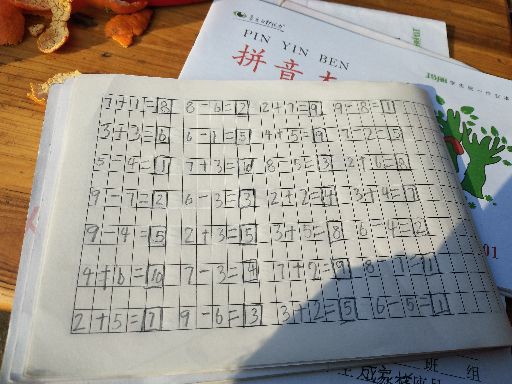 PIN YIN BEN
拼音本
7+1=8 8-6=2 2+7=9 9-8=1
3+3=6 6-1=5 4+5=9 7-2=5
5-4=1 7+3=10 8-5=3 2+6=8
9-7=2 6-3=3 2+2=4 3+4=7
9-4=5 2+3=5 3+5=8 6-4=2
4+6=10 7-3=4 7+2=9 8-7=1
2+5=7 9-6=3 3+2=5 6-5=1
01
班 组